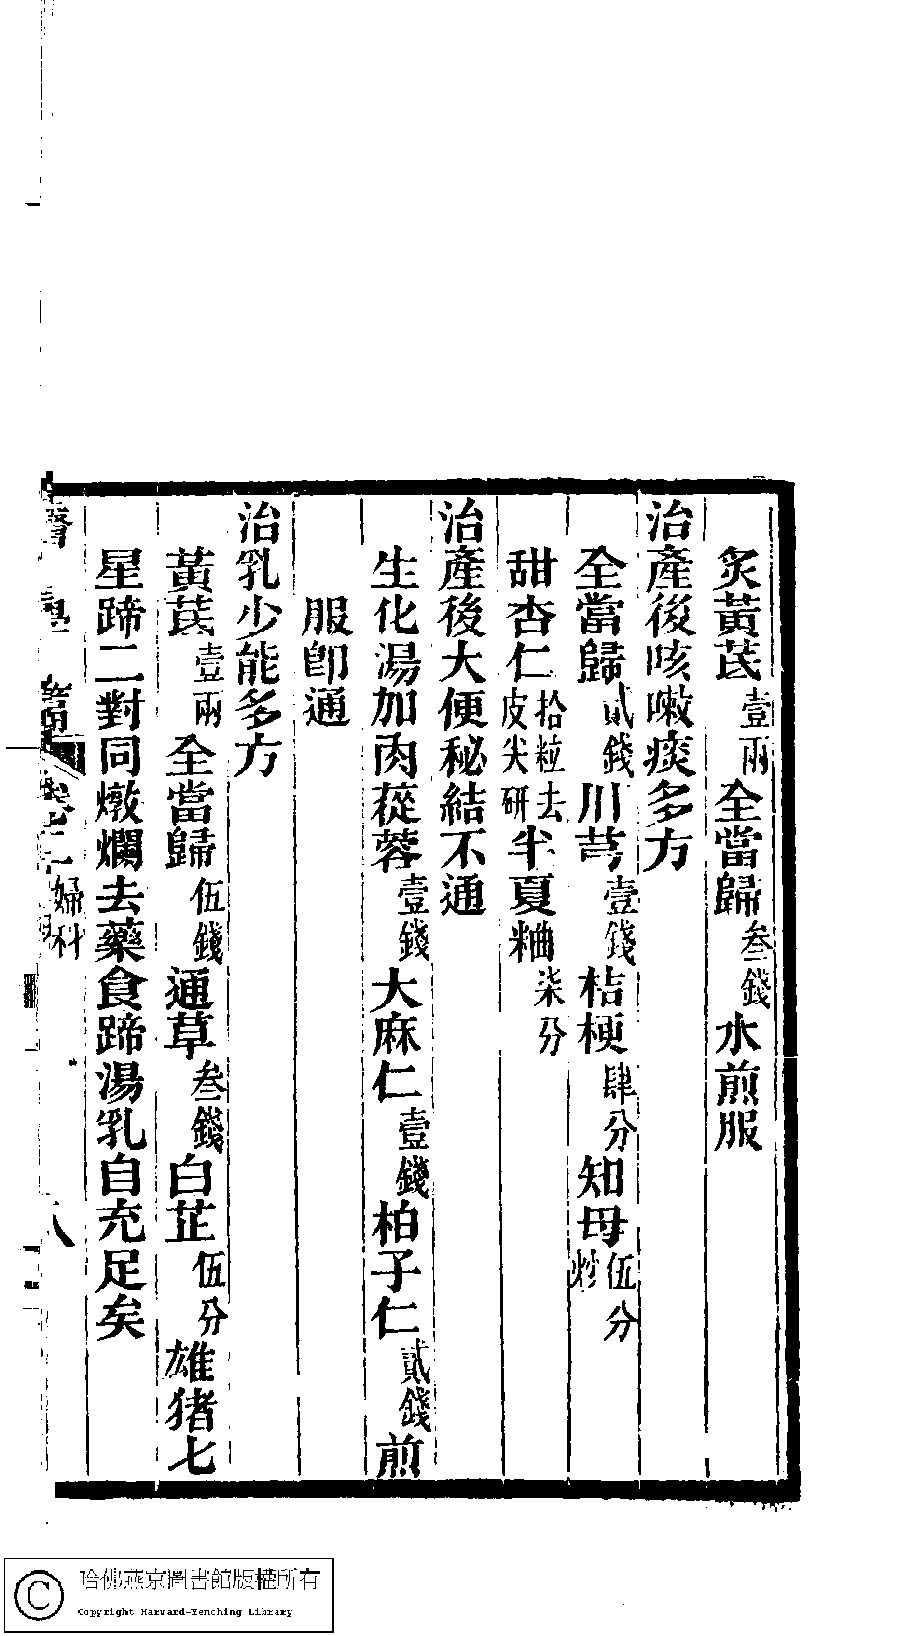 炙黃芪壹兩全當歸叁錢水煎服
治產後咳嗽痰多方
全當歸貳錢川芎壹錢桔梗肆分知母伍分炒
甜杏仁拾粒去皮尖研半夏粬柒分
治產後大便秘結不通
生化湯加肉蓯蓉壹錢大麻仁壹錢柏子仁貳錢煎
服卽通
治乳少能多方
黃芪壹兩全當歸伍錢通草叁錢白芷伍分雄猪七
星蹄二對同燉爛去藥食蹄湯乳自充足矣
婦科
八
哈佛燕京圖書館版權所有
Copyright Harvard-Yenching Library